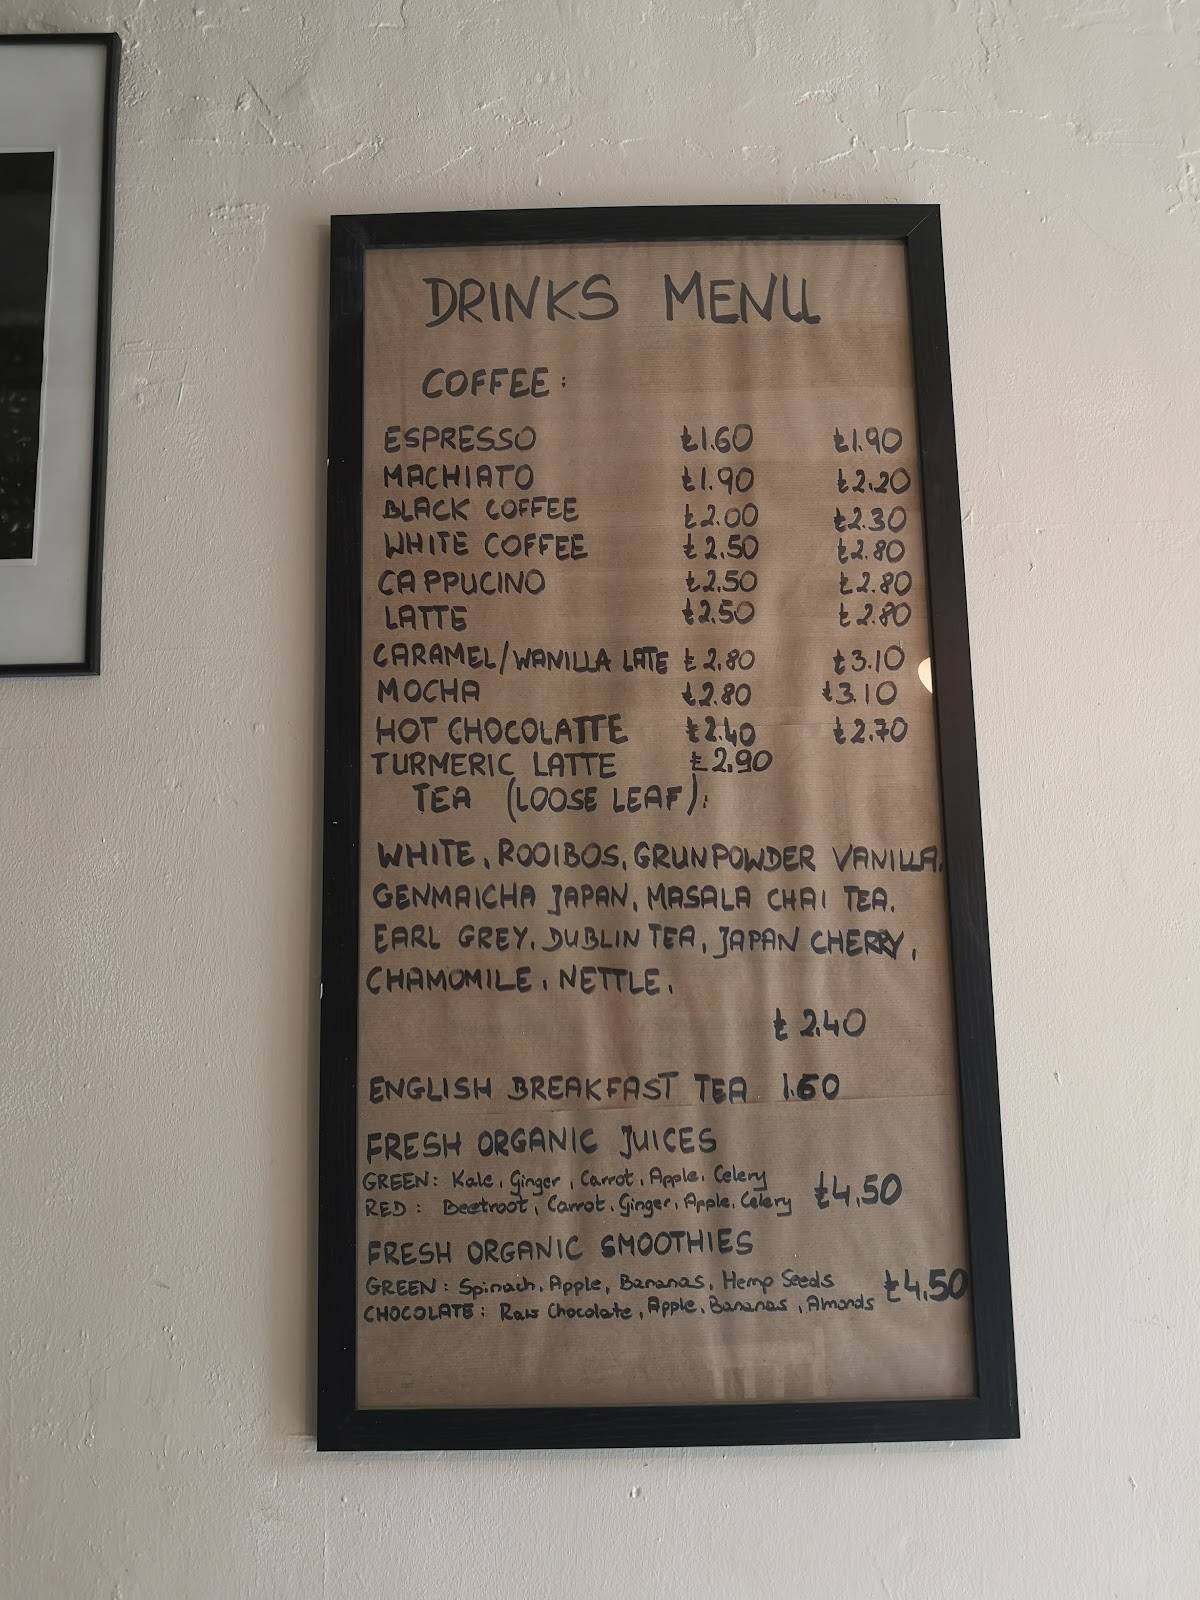 DRINKS MENU
COFFEE:
ESPRESSO £1.60 £1.90
MACHIATO £1.90 £2.20
BLACK COFFEE £2.00 £2.30
WHITE COFFEE £2.50 £2.80
CAPPUCINO £2.50 £2.80
LATTE £2.50 £2.80
CARAMEL/WANILLA LATE £2.80 £3.10
MOCHA £2.80 £3.10
HOT CHOCOLATTE £2.40 £2.70
TURMERIC LATTE £2.90
TEA (LOOSE LEAF):
WHITE, ROOIBOS, GRUNPOWDER VANILLA,
GENMAICHA JAPAN, MASALA CHAI TEA,
EARL GREY, DUBLIN TEA, JAPAN CHERRY,
CHAMOMILE, NETTLE,
£2.40
ENGLISH BREAKFAST TEA 1.60
FRESH ORGANIC JUICES
GREEN: Kale, Ginger, Carrot, Apple, Celery
RED: Beetroot, Carrot, Ginger, Apple, Celery £4.50
FRESH ORGANIC SMOOTHIES
GREEN: Spinach, Apple, Bananas, Hemp Seeds £4.50
CHOCOLATE: Raw Chocolate, Apple, Bananas, Almonds